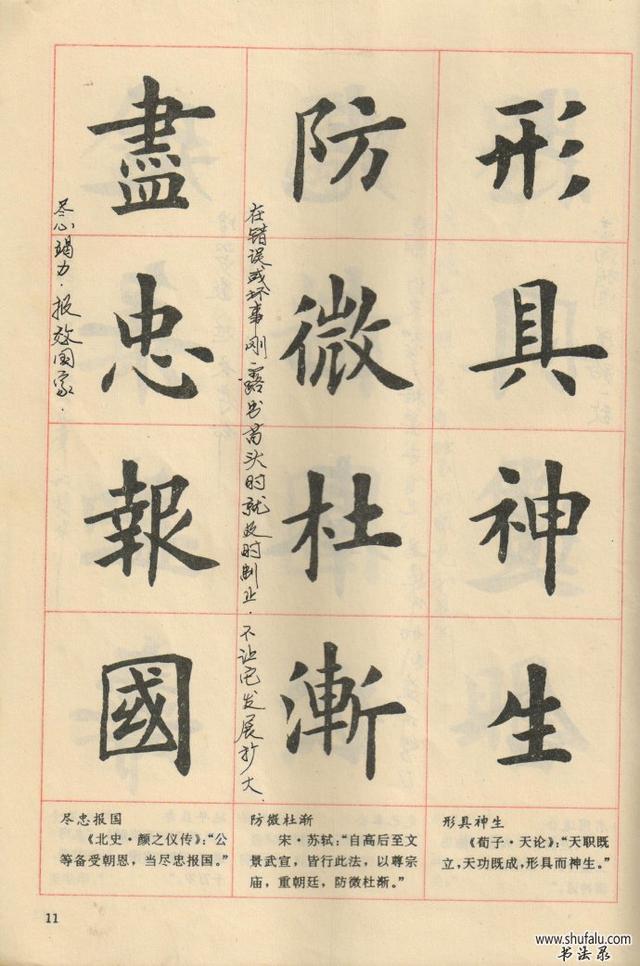 形具神生
防微杜漸
在错误或坏事刚露出苗头时就及时制止．不让它发展扩大．
盡忠報國
尽心竭力．报效国家．
尽忠报国
《北史·颜之仪传》：“公
等备受朝恩，当尽忠报国。”
防微杜渐
宋·苏轼：“自高后至文
景武宣，皆行此法，以尊宗
庙，重朝廷，防微杜渐。”
形具神生
《荀子·天论》：“天职既
立，天功既成，形具而神生。”
11
www.shufalu.com
书法录